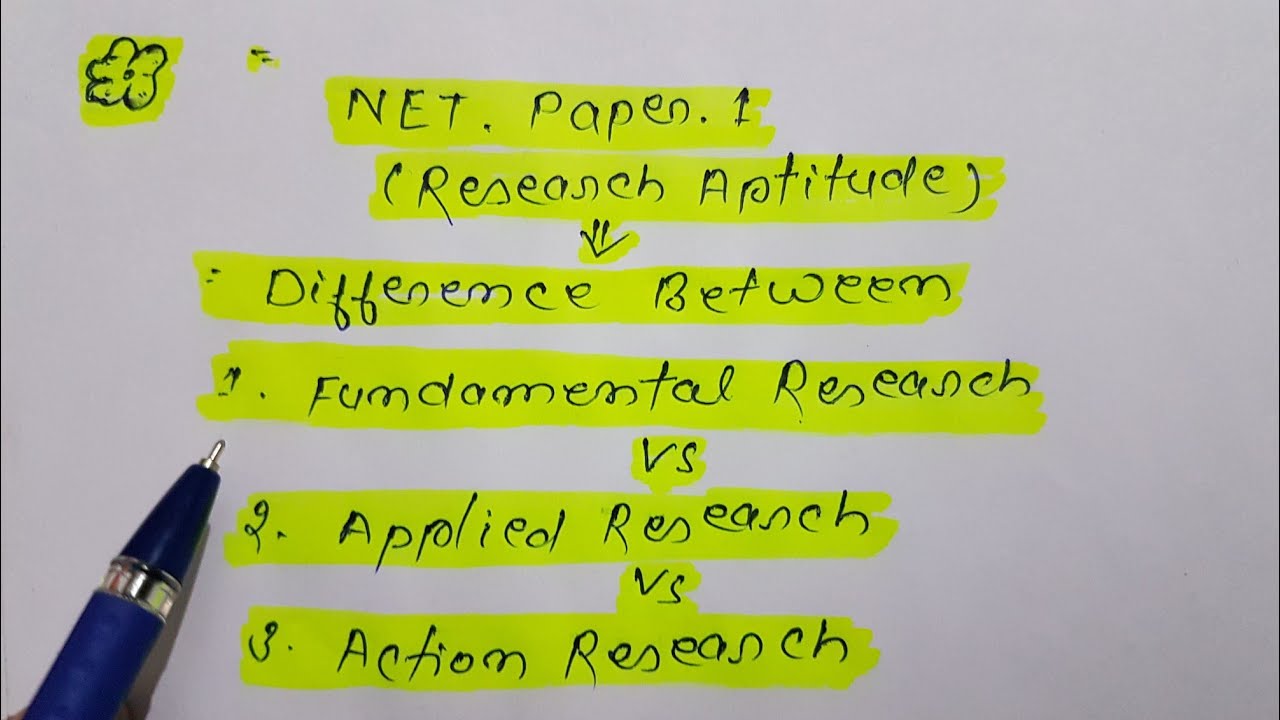 NET. Paper. 1
(Research Aptitude)
Difference Between
1. Fundamental Research
vs
2. Applied Research
vs
3. Action Research